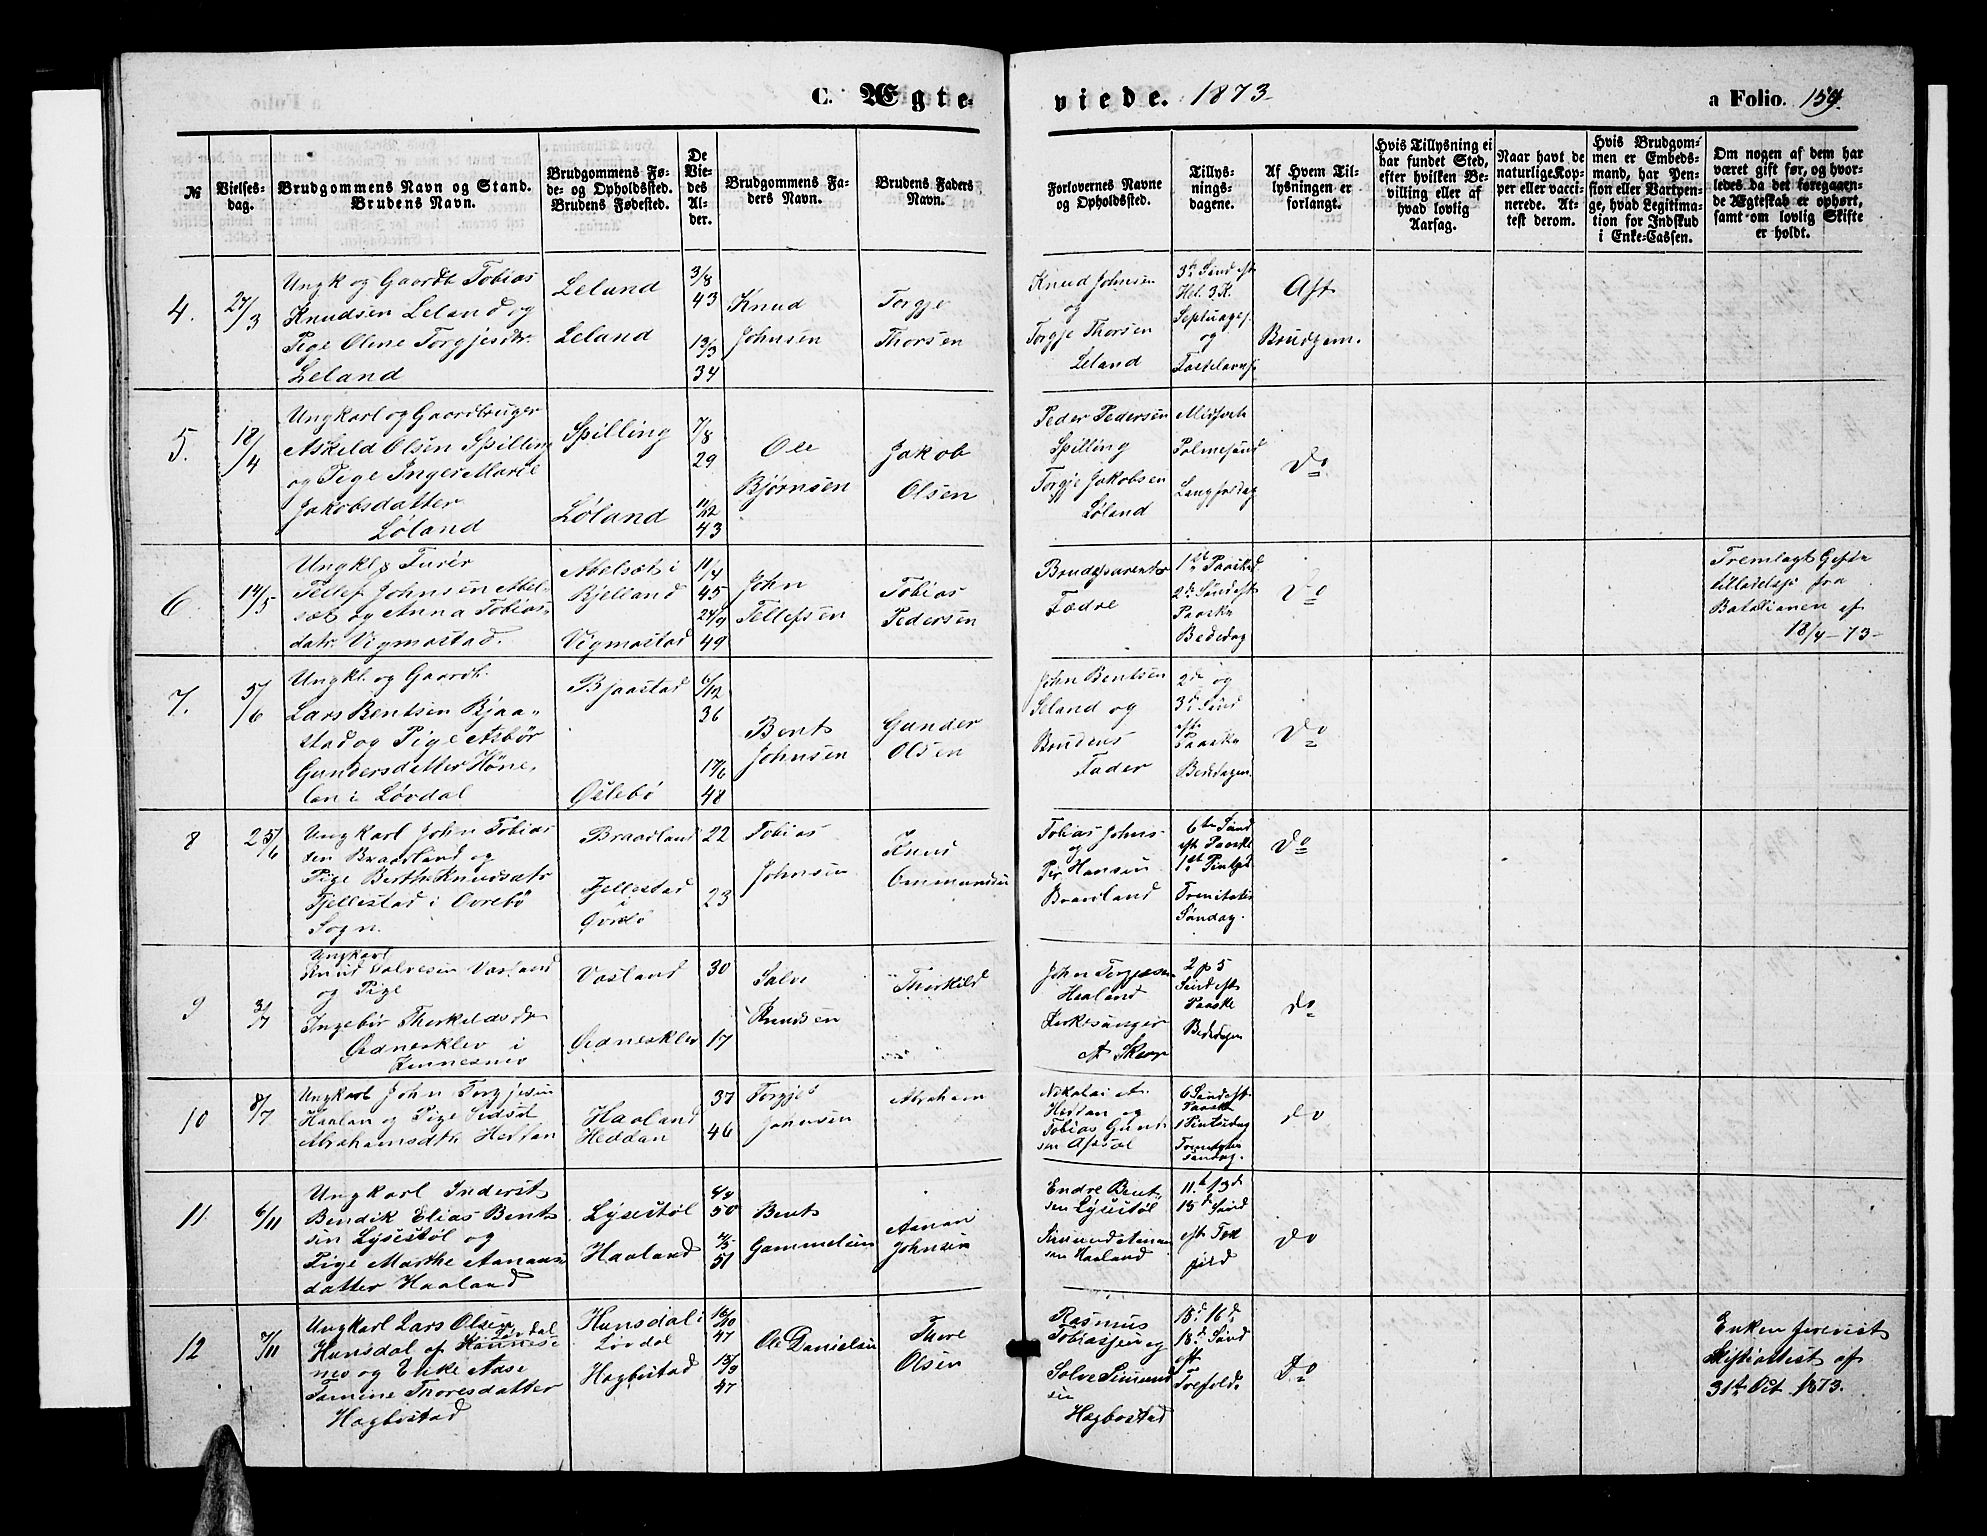 C. Ægte-
viede. 1873
a Folio. 159.
№
Vielses-
dag.
Brudgommens Navn og Stand.
Brudens Navn.
Brudgommens Fø-
de- og Opholdssted.
Brudens Fødested.
De
Vie-
des
Al-
der.
Brudgommens Fa-
ders Navn.
Brudens Faders
Navn.
Forlovernes Navne
og Opholdssted.
Tillys-
nings-
dagene.
Af Hvem Til-
lysningen er
forlangt.
Hvis Tillysning ei
har fundet Sted,
efter hvilken Be-
villing eller af
hvad lovlig
Aarsag.
Naar havt de
naturlige Kop-
per eller vacci-
nerede. At-
test derom.
Hvis Brudgom-
men er Embeds-
mand, har Pen-
sion eller Vartpen-
ge, hvad Legitima-
tion for Indskud
i Enke-Cassen.
Om nogen af dem har
været gift før, og hvor-
ledes da det foregaaen-
de Ægteskab er ophørt,
samt om lovlig Skifte
er holdt.
4.
27/3
Ungk og Gaardb Tobias
Knudsen Leland og
Pige Oline Torgjesdtr.
Leland
Leland
Leland
3/8
43
13/3
34
Knud
Johnsen
Torgje
Thorsen
Knud Johnsen
og
Torgje Thorsen
Leland
3de Sønd eft
Hel. 3 K.
Septuages.
og
Fastelavns
Aft
Brudgom.
5.
18/4
Ungkarl og Gaardbruger
Askeld Olsen Spilling
og Pige Inger Marie
Jakobsdatter
Løland
Spilling
Løland
7/8
29
11/12
43
Ole
Bjørnsen
Jakob
Olsen
Peder Pedersen
Spilling
Torgje Jakobsen
Løland
Midfaste
Palmesønd
Langfredag
Do
6.
14/5
Ungkl & Furér
Tellef Johnsen Abel-
sæt og Anna Tobias-
datr. Vigmostad.
Abelsæt i
Bjelland
Vigmostad
11/4
45
24/9
49
John
Tellefsen
Tobias
Pedersen
Brudeparents
Fædre
1ste Paaskd
2de Sønd eft
Paaske
Bededag
Do
Fremlagt Gifte
tilladelse fra
Batalionen af
18/4-73-
7.
5/6
Ungkl. og Gaardb.
Lars Bentsen Bjaa-
stad og Pige Asbør
Gundersdatter Høne-
len i Løvdal
Bjaastad
Øslebø
6/12
36
17/6
48
Bent
Johnsen
Gunder
Olsen
John Bentsen
Seland og
Brudens
Fader
2de og
3de Sønd
eft
Paaske
Bededagen
Do
8
25/6
Ungkarl John Tobias
sen Braaland og
Pige Berthe Knudsdtr
Fjellestad i Øvrebø
Sogn.
Braaland
Fjellestad
i
Øvrebø
22
23
Tobias
Johnsen
Knud
Ommundsen
Tobias Johns
og
Per Hansen
Braaland
6te Sønd
eft Paaske
1ste Pintsd
Trinitatis
Søndag.
Do
9
3/7
Ungkarl
Knud Salvesen Vasland
og Pige
Ingebør Therkeldsdr
Ødneskløv i
Finnesnes
Vasland
Ødneskløv
30
17
Salve
Knudsen
Therkild
John Torgjesen
Haaland
Kirkesanger
2 p 5
Sønd eft
Paaske
Bededagen
do
10
8/7
Ungkarl John Torgjesen
Haalan og Pige Sidsel
Abrahamsdtr Heddan
Haaland
Heddan
37
46
Torgjes
Jonnsen
Abraham
Nikolai A.
Heddan og
Tobias Gund
sen
6 Sønd eft
Paaske
1 Pintsdag
Trinitatis
søndag.
do
11.
6/11
Ungkarl Inderst
Bendik Elias Bent
sen Lysestøl og
Pige Marthe Aanans
datter Haaland
Lysestøl
Haaland
50
51
Bent
Gammelsen
Aanan
Johnsen
Endre Bent-
sen Lysestøl
Simund Aanan
sen Haaland
11te 13de
15de Sønd
eft Tre
fold
do
12
7/11
Ungkarl Lars Olsen
Hunsdal i Løvdal
og Enke Aase
Tamine Thoresdatter
Hagbostad
Hunsdal i
Løvdal
Hagbostad
16/10
47
15/9
47
Ole Danielsen
Thore
Olsen
Rasmus
Tobiassen og
Salve Simund
sen
Hagbostad
15de 16de
18de Sønd
eft
Trefold.
Do
Enken forevist
Skifteattest af
31te Oct. 1873.